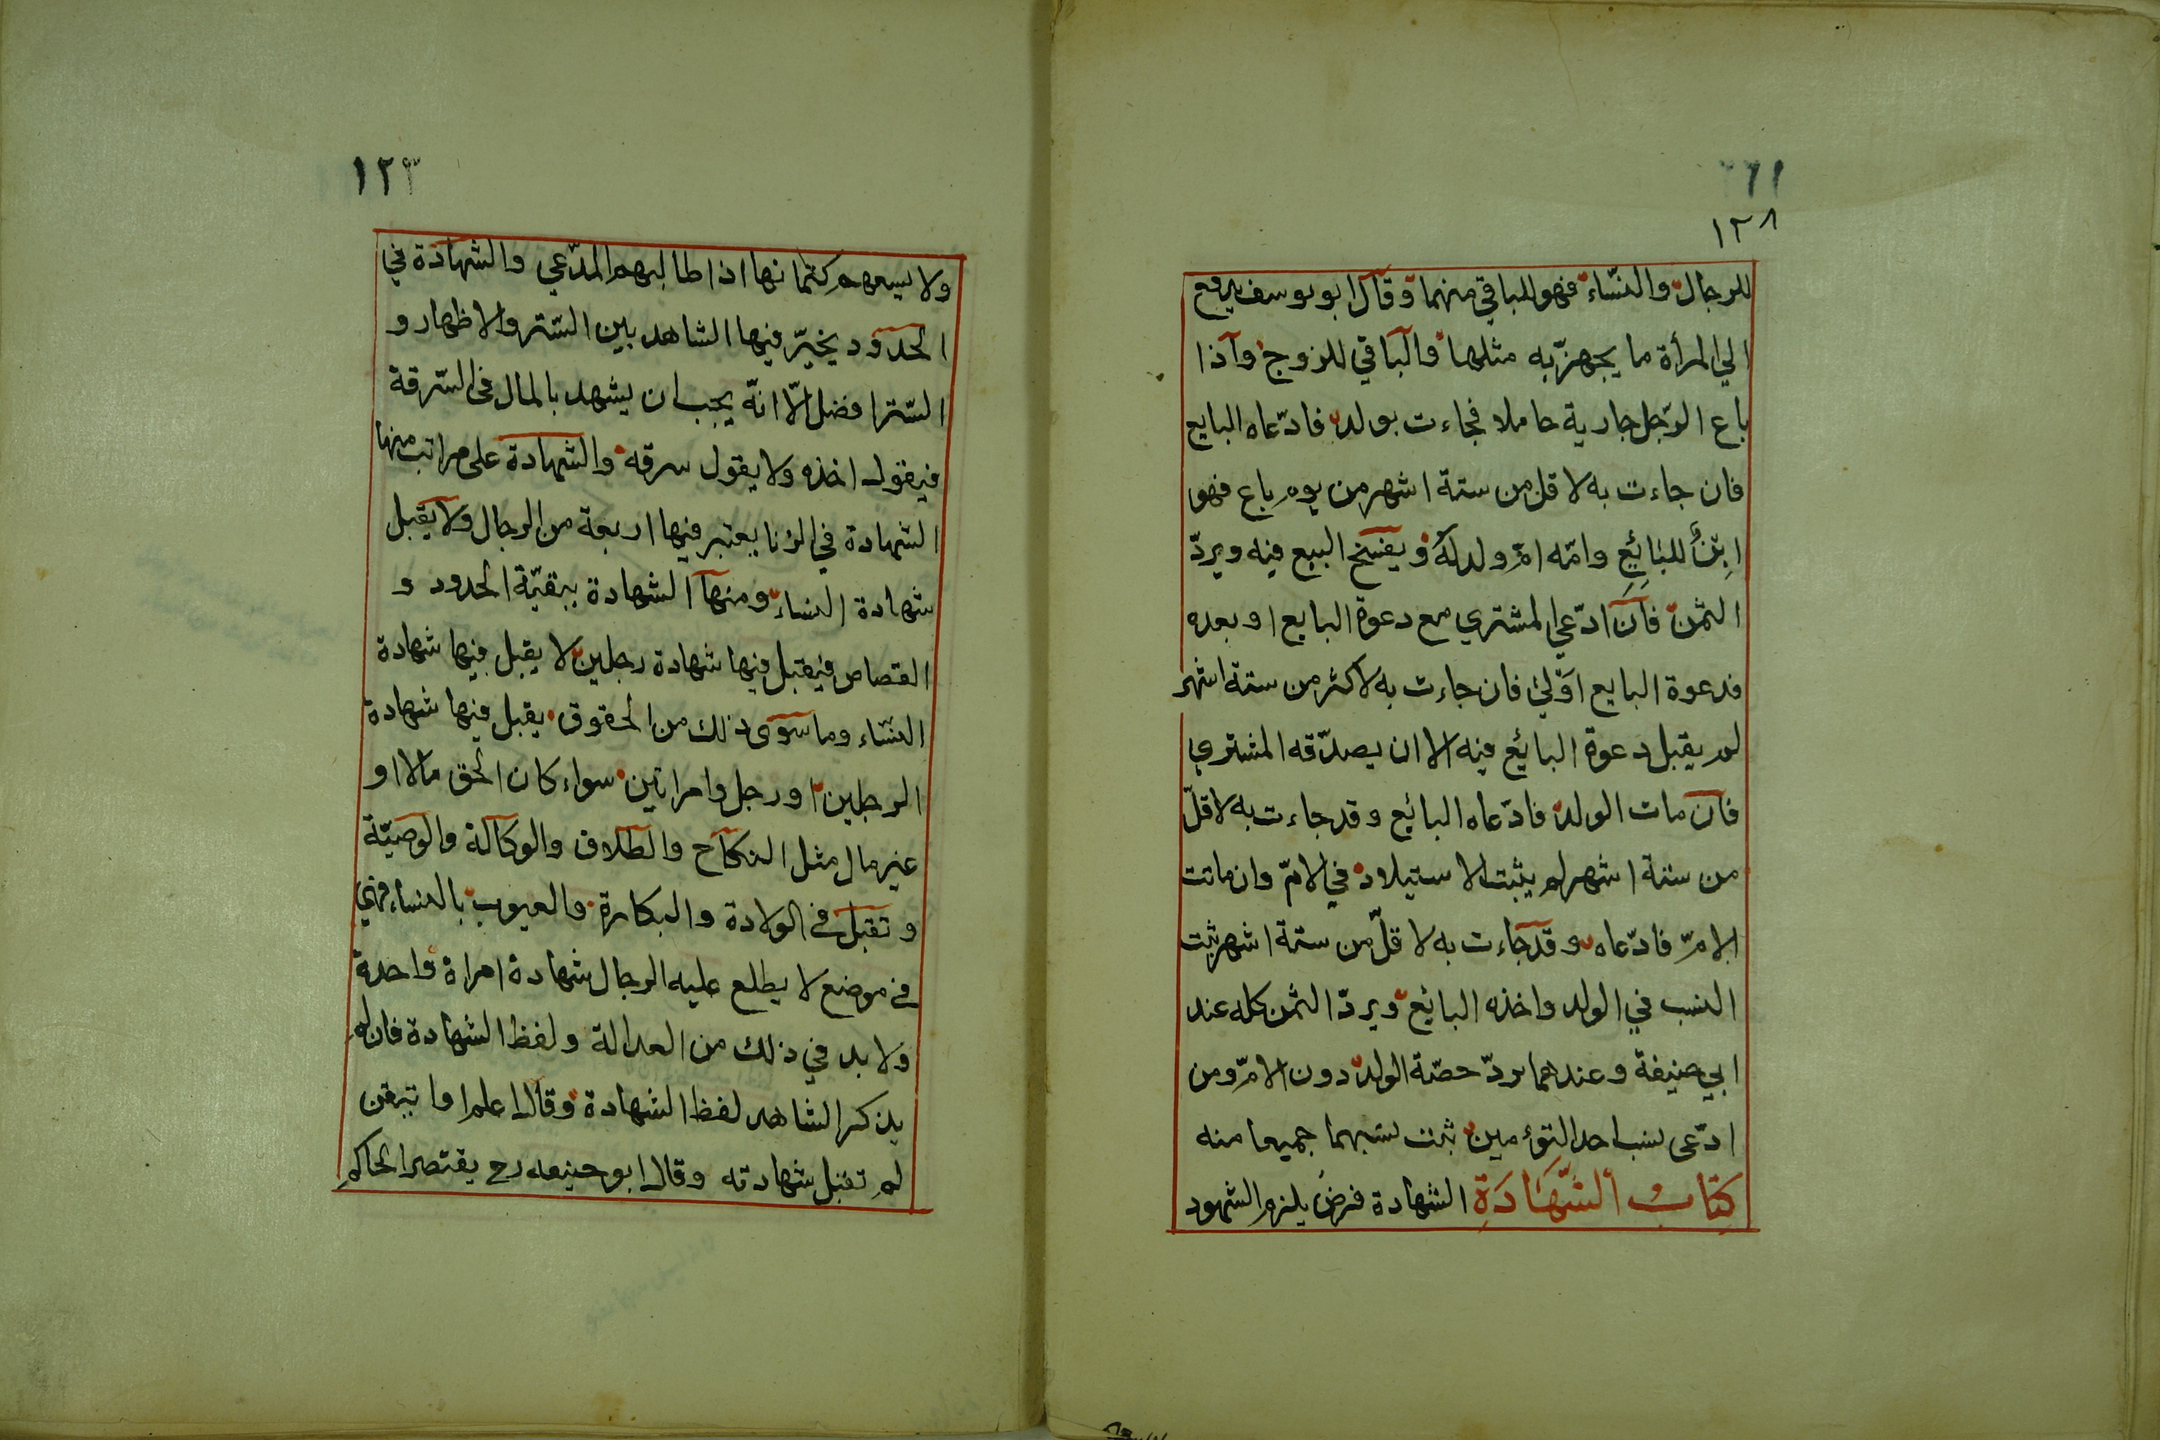 ١٢٨
للرجال والنساء فهو للباقي منهما وقال ابو يوسف يدفع
الي المرأة ما يجهز به مثلها والباقي للزوج واذا
باع الرجل جارية حاملا فجاءت بولد فادّعاه البايع
فان جاءت به لاقل من ستة اشهر من يوم باع فهو
ابنٌ للبائع وامّه امّ ولد له ويفسخ البيع فيه ويردّ
الثمن فان ادّعي المشتري مع دعوة البايع او بعده
فدعوة البايع اوّلي فان جاءت به لاكثر من ستة اشهر
لم يقبل دعوة البائع فيه الا ان يصدّقه المشتري
فان مات الولد فادّعاه البائع وقد جاءت به لاقلّ
من ستة اشهر لم يثبت الاستيلاد في الامّ وان ماتت
الامّ فادّعاه وقد جاءت به لاقلّ من ستة اشهر ثبت
النسب في الولد واخذه البائع ويردّ الثمن كله عند
ابي حنيفة وعندهما يردّ حصّة الولد دون الامّ ومن
ادّعى نسب احد التوءمين ثبت نسبهما جميعا منه
كِتَابُ الشَّهَادَةِ الشهادة فرض يلزم الشهود
١٢٣
ولا يسعهم كتمانها اذا طالبهم المدّعي والشهادة في
الحدود يخيّر فيها الشاهد بين السّتر والاظهار و
السّتر افضل الّا انّه يجب ان يشهد بالمال في السّرقة
فيقول اخذه ولا يقول سرقه والشهادة على مراتب منها
الشهادة في الزنا يعتبر فيها اربعة من الرجال ولا يقبل
شهادة النساء ومنها الشهادة ببقيّة الحدود و
القصاص فيقبل فيها شهادة رجلين لا يقبل فيها شهادة
النّساء وما سوى ذلك من الحقوق يقبل فيها شهادة
الرجلين او رجل وامراتين سواء كان الحق مالا او
غير مال مثل النكاح والطلاق والوكالة والوصيّة
وتقبل في الولادة والبكارة والعيوب بالنساء
في موضع لا يطلع عليه الرجال شهادة امراة واحدة
ولا بد في ذلك من العدالة ولفظ الشهادة فان لم
يذكر الشاهد لفظ الشهادة وقال اعلم او اتيقن
لم تقبل شهادته وقال ابو حنيفه رح يقتصر الحاكم